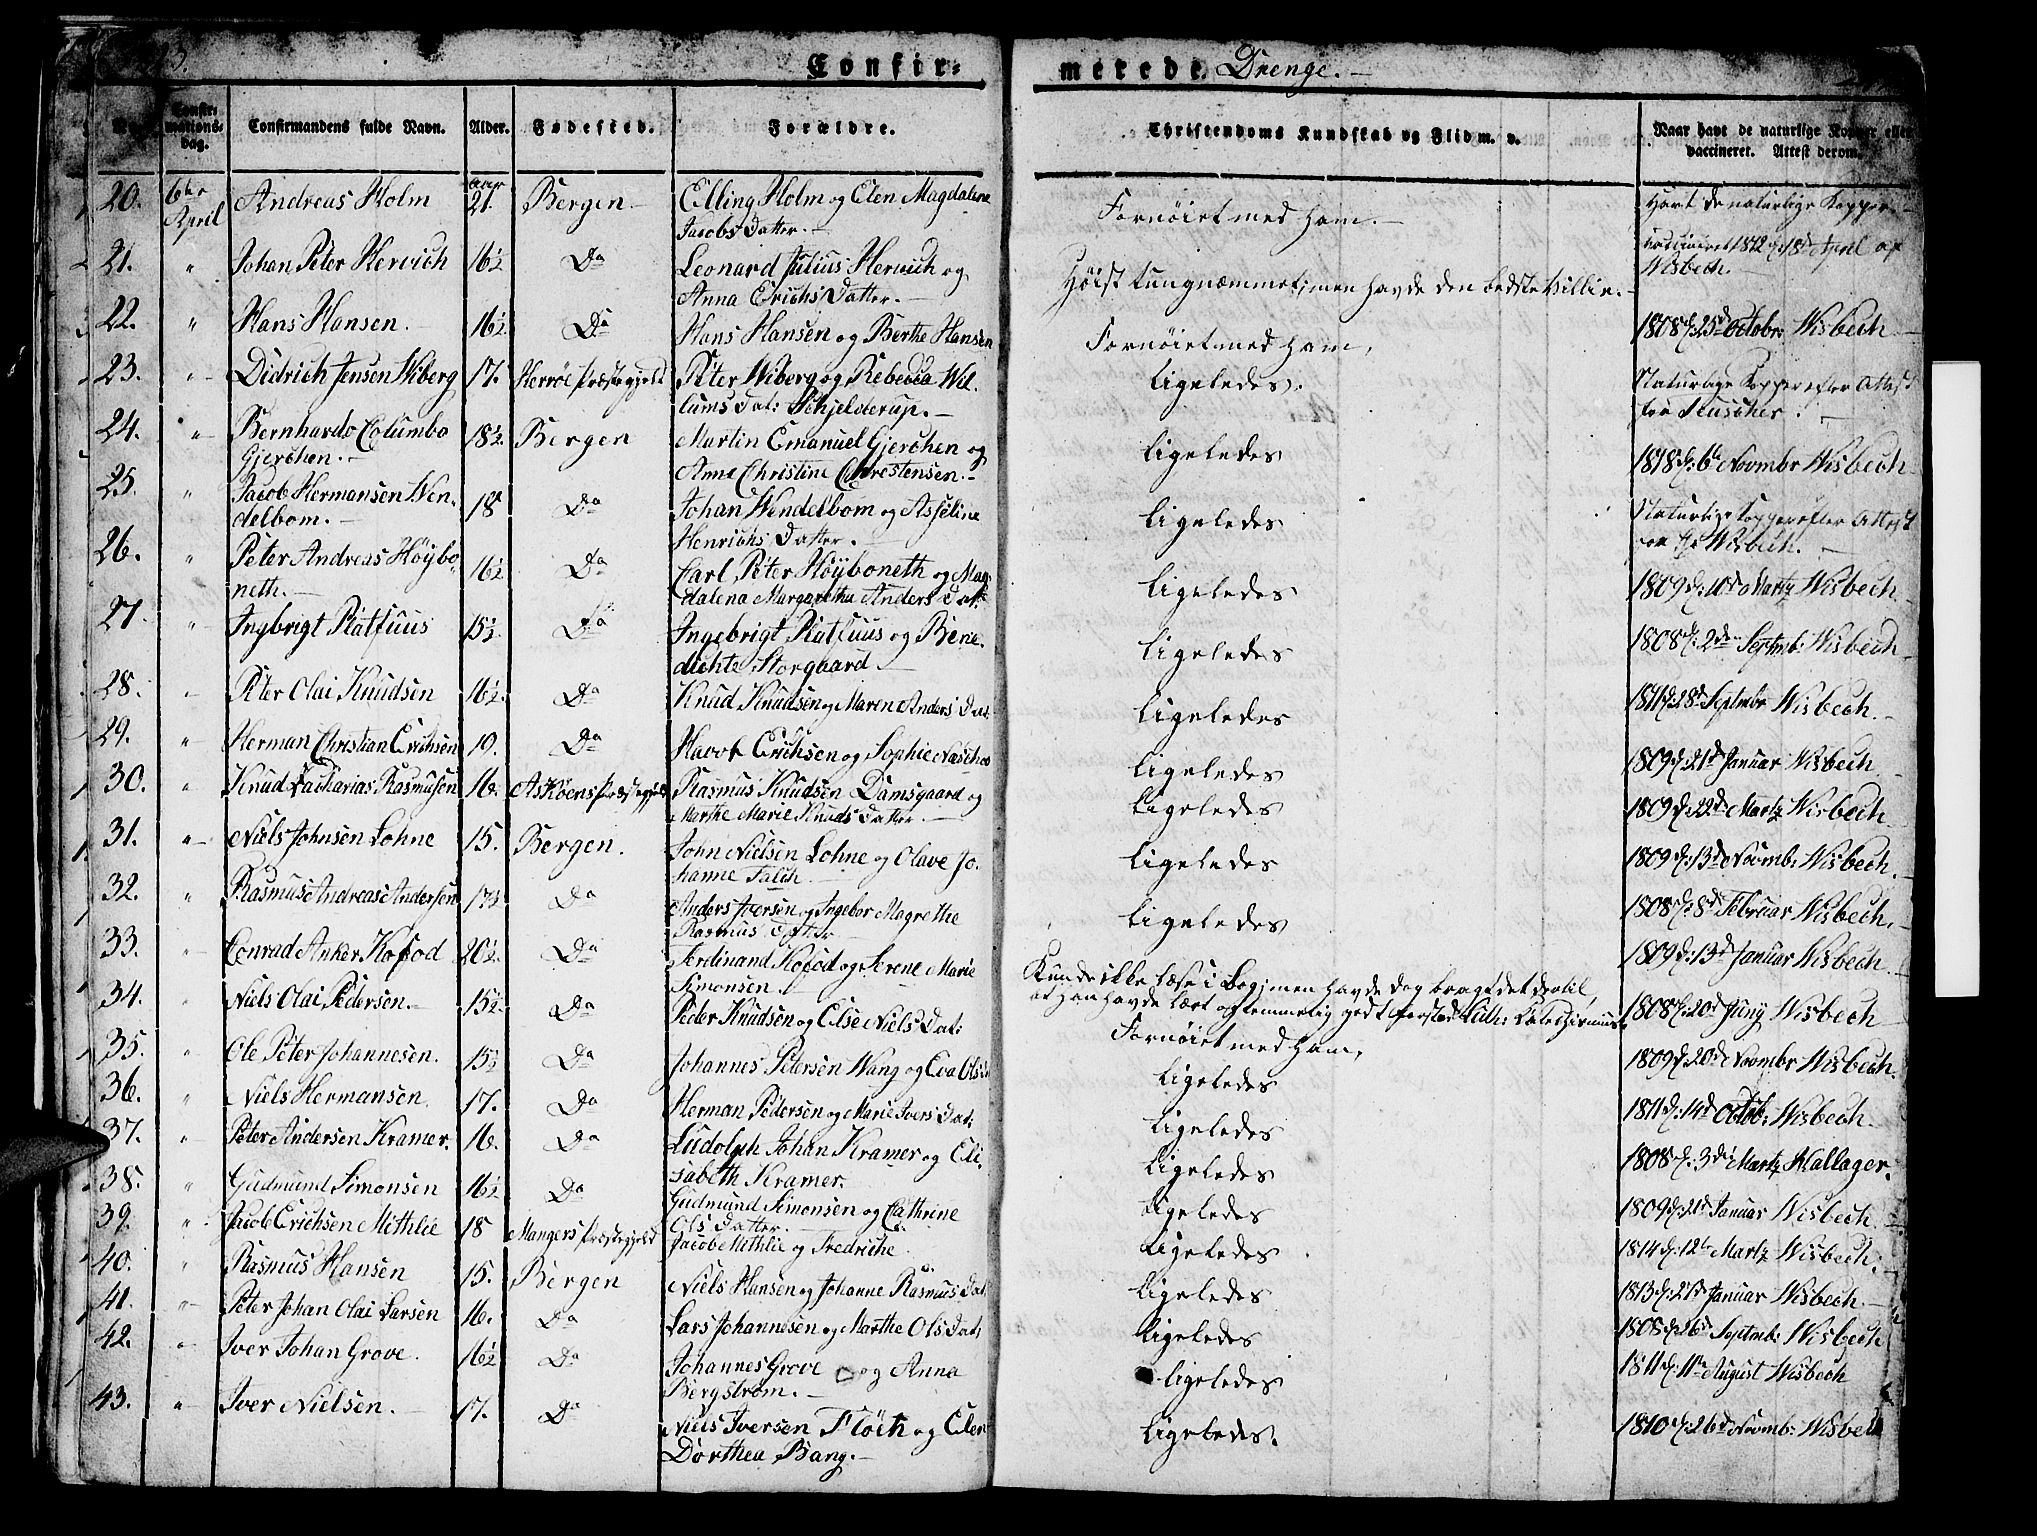 Confir= merede Drenge. —
Confir=
mations=
dag.
Confirmandens fulde Navn.
Alder.
Fødested.
Forældre.
Christendoms Kundskab og Flid m. v.
Naar havt de naturlige Kopper eller
vaccineret. Attest derom.
20. 6te April Andreas Holm Aar 21. Bergen Elling Holm og Elen Magdalene
Jacobs Datter. — Fornøiet med ham. — Havt de naturlige Kopper. —
21. " Johan Peter Hervich 16½ Do Leonard Julius Hervich og
Anna Erichs Datter. — Høist tungnæmmet, men havde den bedste Villie. — vaccineret 1812 d: 18de April af
Wisbech. —
22. " Hans Hansen. 16½ Do Hans Hansen og Berthe Hansen Fornøiet med ham, 1808 d: 25de Octobr: Wisbech
23. " Didrich Jensen Wiberg 17. Herrøe Præstegjeld Peter Wiberg og Rebecca Wil-
lums Dat: Schjelderup. — Ligeledes. Naturlige Kopper efter Attest
fra
24. " Bernhardo Columbo
Gjerchen. — 18½ Bergen Martin Emanuel Gjerchen og
Anne Christine Chrestensen. — Ligeledes 1818 d: 6te Novmbr Wisbech
25. " Jacob Hermansen Wen-
delbom. — 18 Do Johan Wendelbom og Asseline
Henrichs Datter. Ligeledes Naturlige Kopper efter Attest
Wisbech. —
26. " Peter Andreas Höybo-
neth. — 16½ Do Carl Peter Höyboneth og Mag-
dalena Margaretha Anders Dat: Ligeledes 1809 d: 10de Martz Wisbech.
27. " Ingbrigt Platfuus 15½ Do Ingebrigt Platfuus og Bene-
dichte Storgaard. — Ligeledes 1808 d: 2den Septmb: Wisbech
28. " Peter Olai Knudsen 16½. Do Knud Knudsen og Maren Anders Dat: Ligeledes 1811 d: 18de Septmbr Wisbech.
29. " Herman Christian Erichsen 19. Do Havor Erichsen og Sophie Ligeledes 1809 d: 21de Januar Wisbech
30. " Knud Zacharias Rasmusen 16. Askøens Præstegjeld Rasmus Knudsen Damsgaard og
Marthe Marie Knuds Datter. — Ligeledes 1809 d: 22de Martz Wisbech
31. " Niels Johnsen Lohne 15. Bergen. John Nielsen Lohne og Olave Jo-
hanne Falch. Ligeledes 1809 d: 13de Novmb: Wisbech.
32. " Rasmus Andreas Andersen 17½ Do Anders Iversen og Ingebor Magrethe
Rasmus Datter Ligeledes 1808 d: 8de Februar Wisbech.
33. " Conrad Anker Kofod 20½. Do Ferdinand Kofod og Serene Marie
Simonsen. Kunde ikke læse i Bog, men havde dog bragt det dertil,
at han havde lært og temmelig godt forstod Luth: Catechismus. 1809 d: 13de Januar Wisbech.
34. " Niels Olai Pedersen. — 15½. Do Peder Knudsen og Else Niels Dat: Fornøiet med ham, 1808 d: 20de Juny Wisbech
35. " Ole Peter Johannesen. 15½ Do Johannes Petersen Wang og Eva Ligeledes 1809 d: 20de Novmbr Wisbech.
36. " Niels Hermansen. 17. Do Herman Pedersen og Marie Ivers Dat: Ligeledes 1811 d: 14de Octob: Wisbech.
37. " Peter Andersen Kramer. 16. Do Ludolph Johan Kramer og Eli-
sabeth Kramer. Ligeledes 1808 d: 3die Martz Hallager.
38. " Gudmund Simonsen 16½ Do Gudmund Simonsen og Cathrine
Ols Datter. — Ligeledes 1809 d: 21de Januar Wisbech
39. " Jacob Erichsen Mithlie 18 Mangers Præstegjeld Jacob Mithlie og Fredriche. Ligeledes 1814 d: 12te Martz Wisbech.
40. " Rasmus Hansen 15. Bergen Niels Hansen og Johanne Rasmus Dat: Ligeledes 1813 d: 21de Januar Wisbech. —
41. " Peter Johan Olai Larsen 16. Do Lars Johannesen og Marthe Ols Dat: Ligeledes 1808 d: 26de Septmb: Wisbech
42. " Iver Johan Grove. 16½ Do Johannes Grove og Anna
Bergstrøm. — Ligeledes 1811 d: 11te August Wisbech
43. " Iver Nielsen. 17. Do Niels Iversen Fløch og Elen
Dorthea Bang. — Ligeledes. 1810 d: 26de Novmb: Wisbech